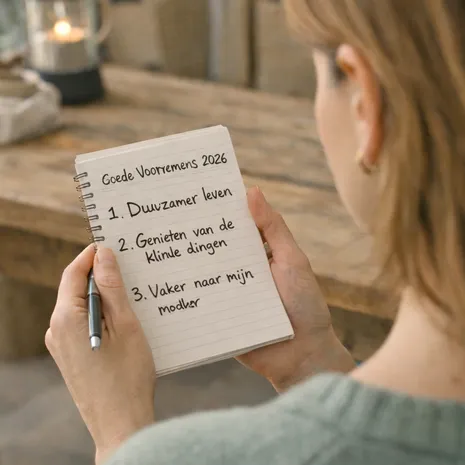 Goede Voorremens 2026
1. Duuvzamer leven
2. Genieten van de
klinle dingen
3. Vaker naar mijn
modker